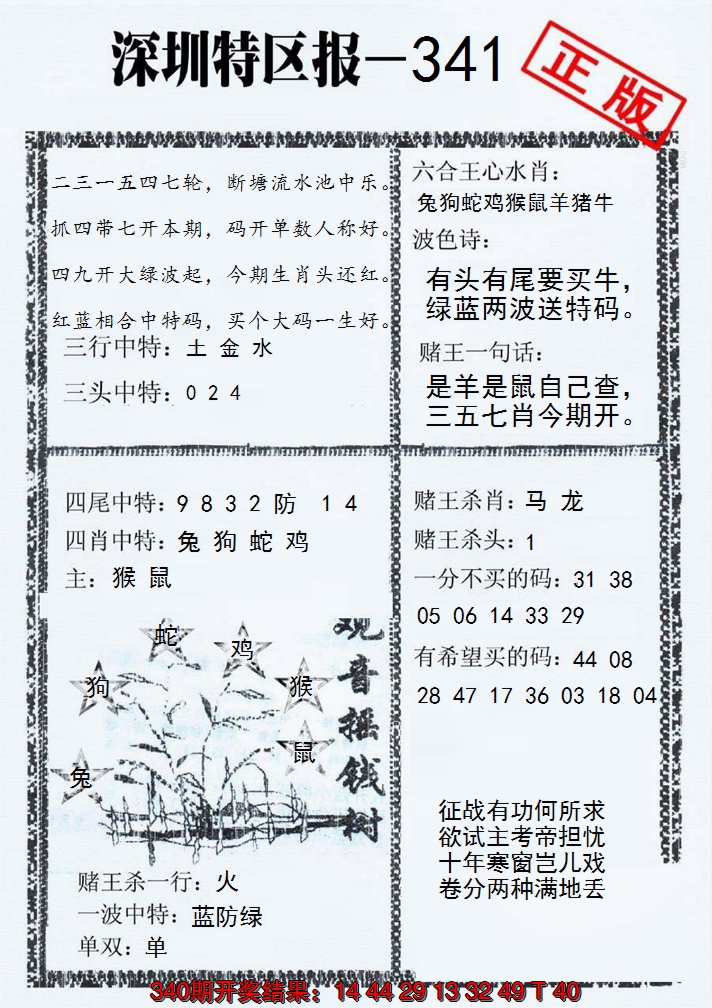 深圳特区报-341
正版
二三一五四七轮，断塘流水池中乐。
抓四带七开本期，码开单数人称好。
四九开大绿波起，今期生肖头还红。
红蓝相合中特码，买个大码一生好。
三行中特：土 金 水
三头中特：0 2 4
六合王心水肖：
兔狗蛇鸡猴鼠羊猪牛
波色诗：
有头有尾要买牛，
绿蓝两波送特码。
赌王一句话：
是羊是鼠自己查，
三五七肖今期开。
四尾中特：9 8 3 2 防 1 4
四肖中特：兔 狗 蛇 鸡
主：猴 鼠
蛇
鸡
狗
猴
鼠
兔
观音摇钱树
赌王杀一行：火
一波中特：蓝防绿
单双：单
赌王杀肖：马 龙
赌王杀头：1
一分不买的码：31 38
05 06 14 33 29
有希望买的码：44 08
28 47 17 36 03 18 04
征战有功何所求
欲试主考帝担忧
十年寒窗岂儿戏
卷分两种满地丢
340期开奖结果：14 44 29 13 32 49 T 40